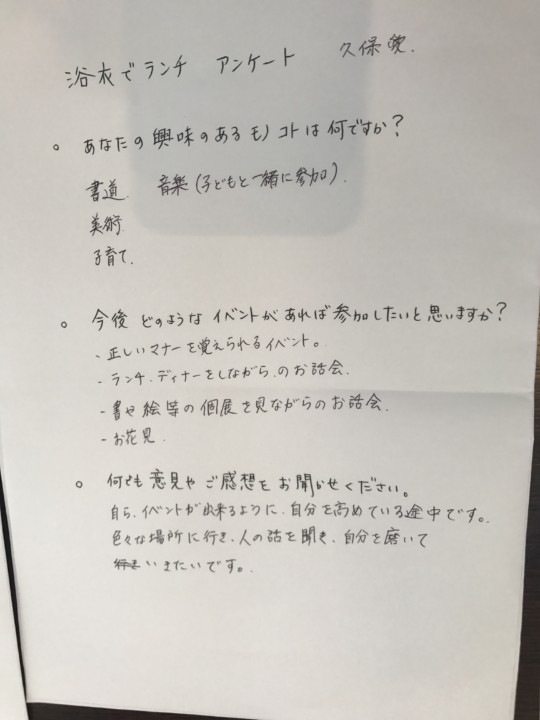 浴衣でランチ アンケート 久保愛.
。あなたの興味のあるモノコトは何ですか?
書道. 音楽(子どもと一緒に参加).
美術.
子育て.
。今後どのようなイベントがあれば参加したいと思いますか?
- 正しいマナーを覚えられるイベント。
- ランチ.ディナーをしながら.のお話会.
- 書や絵等の個展を見ながらのお話会.
- お花見.
。何でも意見やご感想をお聞かせください。
自ら、イベントが出来るように、自分を高めている途中です。
色々な場所に行き、人の話を聞き、自分を磨いて
いきたいです。